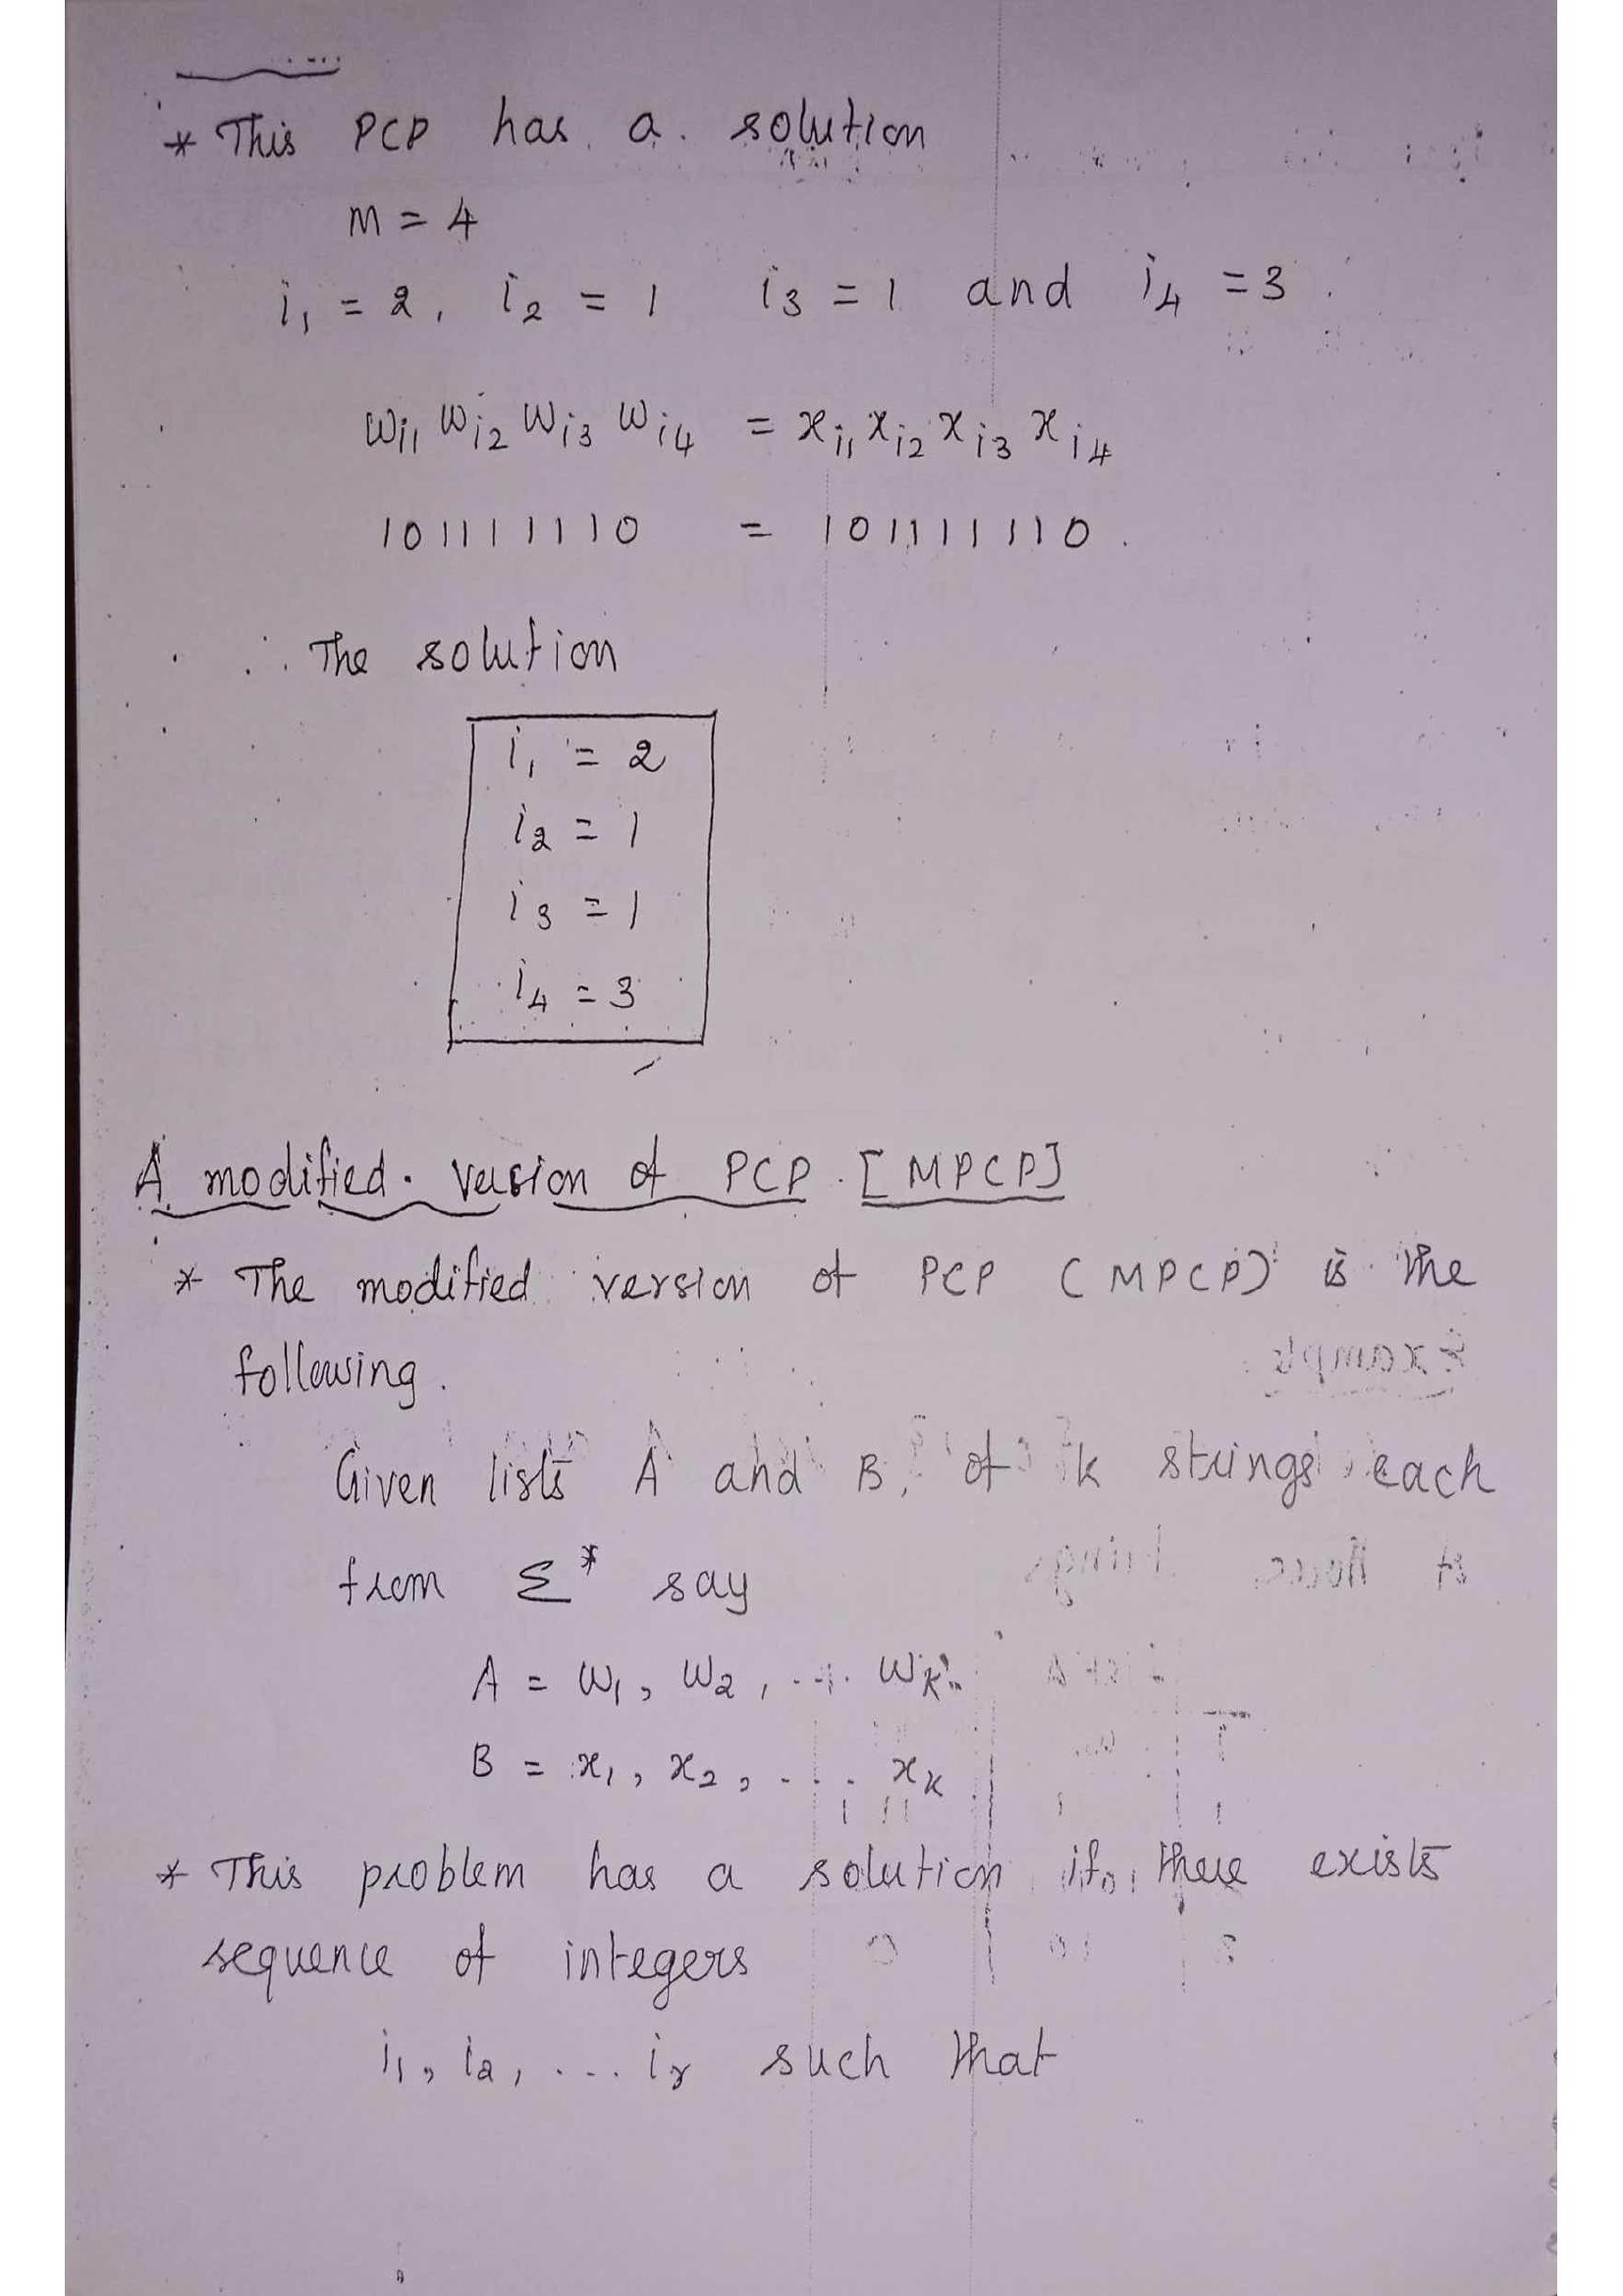 * This PCP has a solution
m = 4
i₁ = 2, i₂ = 1 i₃ = 1 and i₄ = 3.
wi₁ wi₂ wi₃ wi₄ = xi₁ xi₂ xi₃ xi₄
101111110 = 101111110.
∴ The solution
i₁ = 2
i₂ = 1
i₃ = 1
i₄ = 3
A modified version of PCP [MPCP]
* The modified version of PCP (MPCP) is the
following.
Given lists A and B, of k strings each
from Σ* say
A = w₁, w₂, .... wk
B = x₁, x₂, .... xk
* This problem has a solution if, there exists
sequence of integers
i₁, i₂, ... ir such that